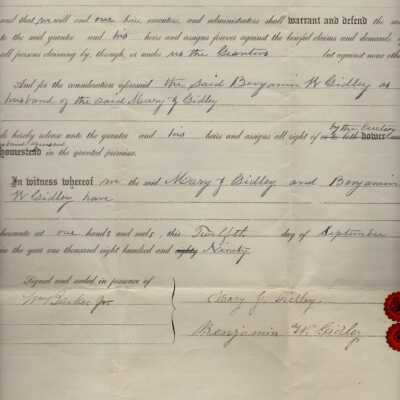 and that we will and our heirs, executors, and administrators shall warrant and defend the same
to the said grantee and his heirs and assigns forever against the lawful claims and demands of
all persons claiming by, through, or under us the Grantors but against none other
And for the consideration aforesaid the said Benjamin W Gidley as
husband of the said Mary J Gidley
do hereby release unto the grantee and his heirs and assigns all right of or to both dower and
by the Curtesy
homestead in the granted premises.
In witness whereof we the said Mary J Gidley and Benjamin
W Gidley have
hereunto set our hands and seals, this Twelfth day of September
in the year one thousand eight hundred and eighty Ninety
Signed and sealed in presence of
Wm Barker Jr
Mary J. Gidley.
Benjamin W. Gidley